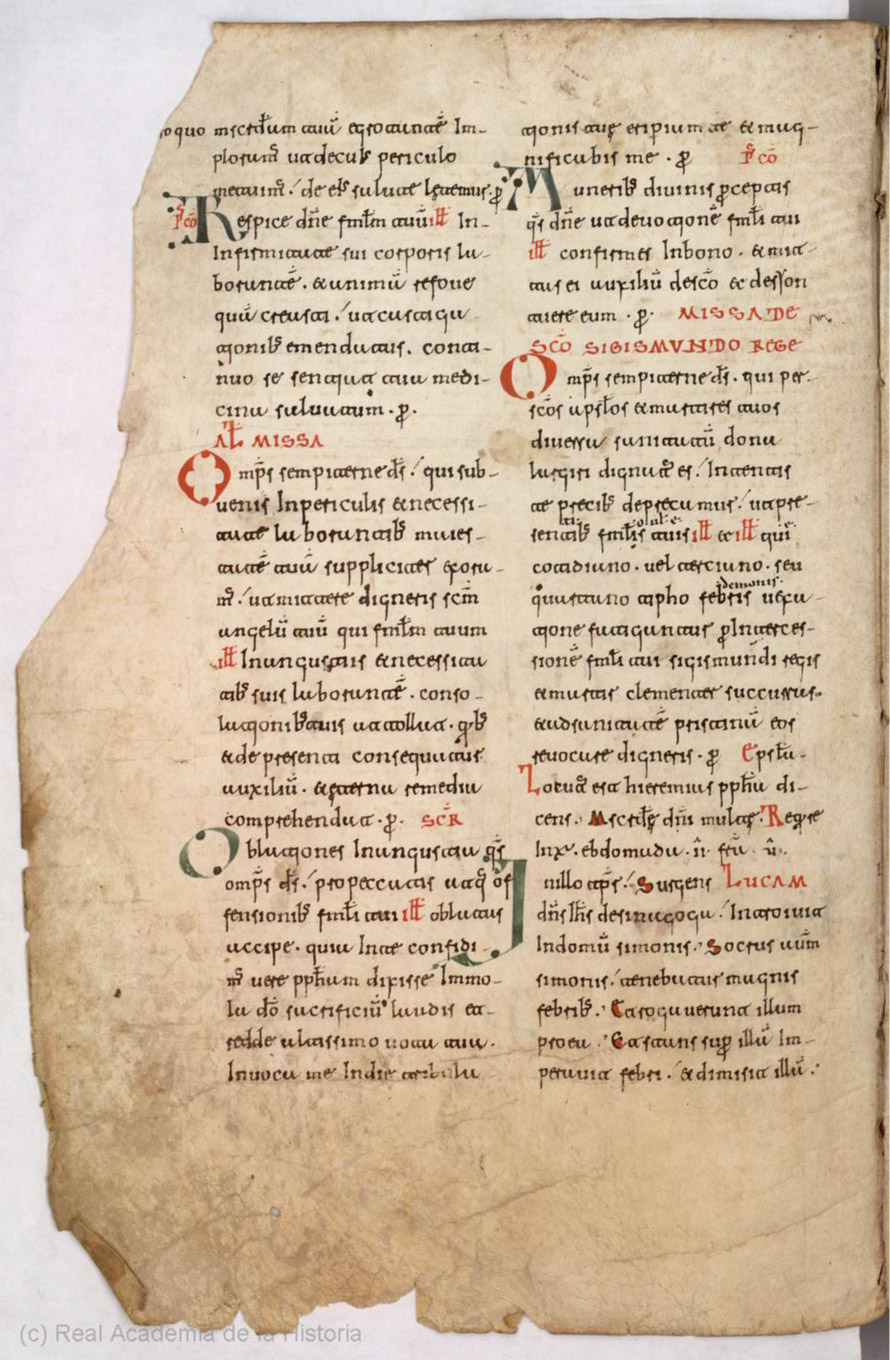 o quo misericordiam tuam egrotantem Im-
ploramus ut de cuius periculo
metuimus. de eius salute letemur. p
Pco Respice dne fmlm tuu ill In-
Infirmitate sui corporis la-
borantē. & animū refove
quā creasti. ut castiga-
tionib emendatus. conti-
nuo se sentiat tua medi-
cina salvatum. p.
AL MISSA
Omps sempiterne ds. qui sub-
venis In periculis & necessi-
tate laborantib maies-
tatē tuā supplicites exora-
m. ut mittere digneris scm
angelū tuū qui fmlm tuum
ill In angustiis & necessita
tib suis laborantē. conso-
lationib tuis attollat. q b
& de presenti consequatur
auxiliū. & eterna remedia
comprehendat. p. SCR
Oblationes In angustia qs
omps ds. pro peccatis atq of
fensionib fmli tui ill oblatas
accipe. quia In te confidi-
m vere pphtam dixisse Immo-
la dō sacrificiū laudis et-
redde altissimo vota tua.
Invoca me In die tribula
tionis tue eripiam te & mag-
nificabis me. p Pcō
Munerib divinis pceptis
qs dne ut devotionē fmli tui
ill confirmes In bono. & mit-
tas ei auxiliū de scō & de sion
tuere eum. p. MISSA DE
SCO SIGISMUNDO REGE
Omps sempiterne ds. qui per-
scos apstlos & martires tuos
diversa sanitatū dona
largiri dignat es. Intentis
te precib deprecamur. ut pre-
sentib fmlis tuis ill & ill qui
cotidiano. vel terciano. seu
quartano tipho febris vexa-
demonis
tione fatigantur p Interces-
sionē fmli tui sigismundi regis
& martiris clementer succurras.
& ad sanitatē pristinā eos
revocare digneris. p Epsta-
Locut est hieremias pphta di-
cens. Miscds dni multe. Reqre
In xv. ebdomada. ii. feria
In illo tps. Surgens LUCAM
dns Ihs de sinagoga. Introivit
In domū simonis. Socrus aum
simonis. tenebatur magnis
febrib. Et rogaverunt illum
pro ea. Et stans sup illa Im-
peravit febri. & dimisit illā.
(c) Real Academia de la Historia